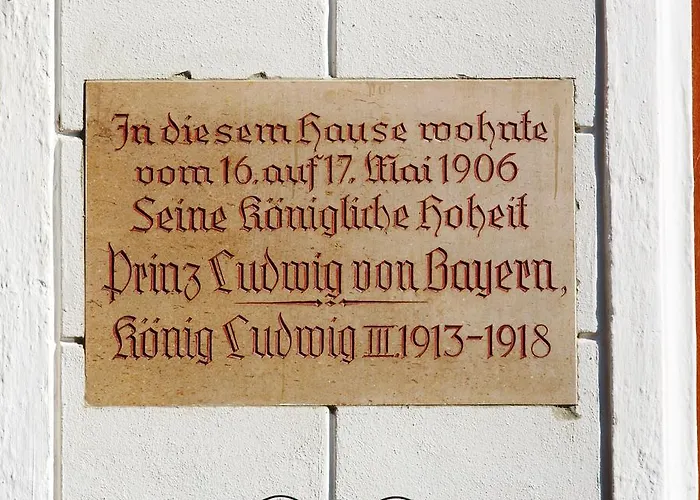 In diesem Hause wohnte
vom 16. auf 17. Mai 1906
Seine Königliche Hoheit
Prinz Ludwig von Bayern,
König Ludwig III. 1913-1918